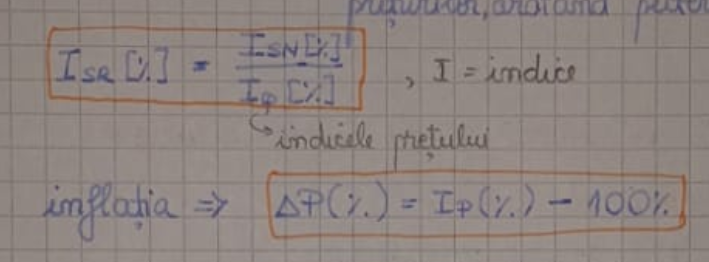 prețurilor, arătând puter
I_SR [%] = I_SN [%] / I_P [%] , I = indice
indicele prețului
inflația => ΔP(%) = I_P(%) - 100%